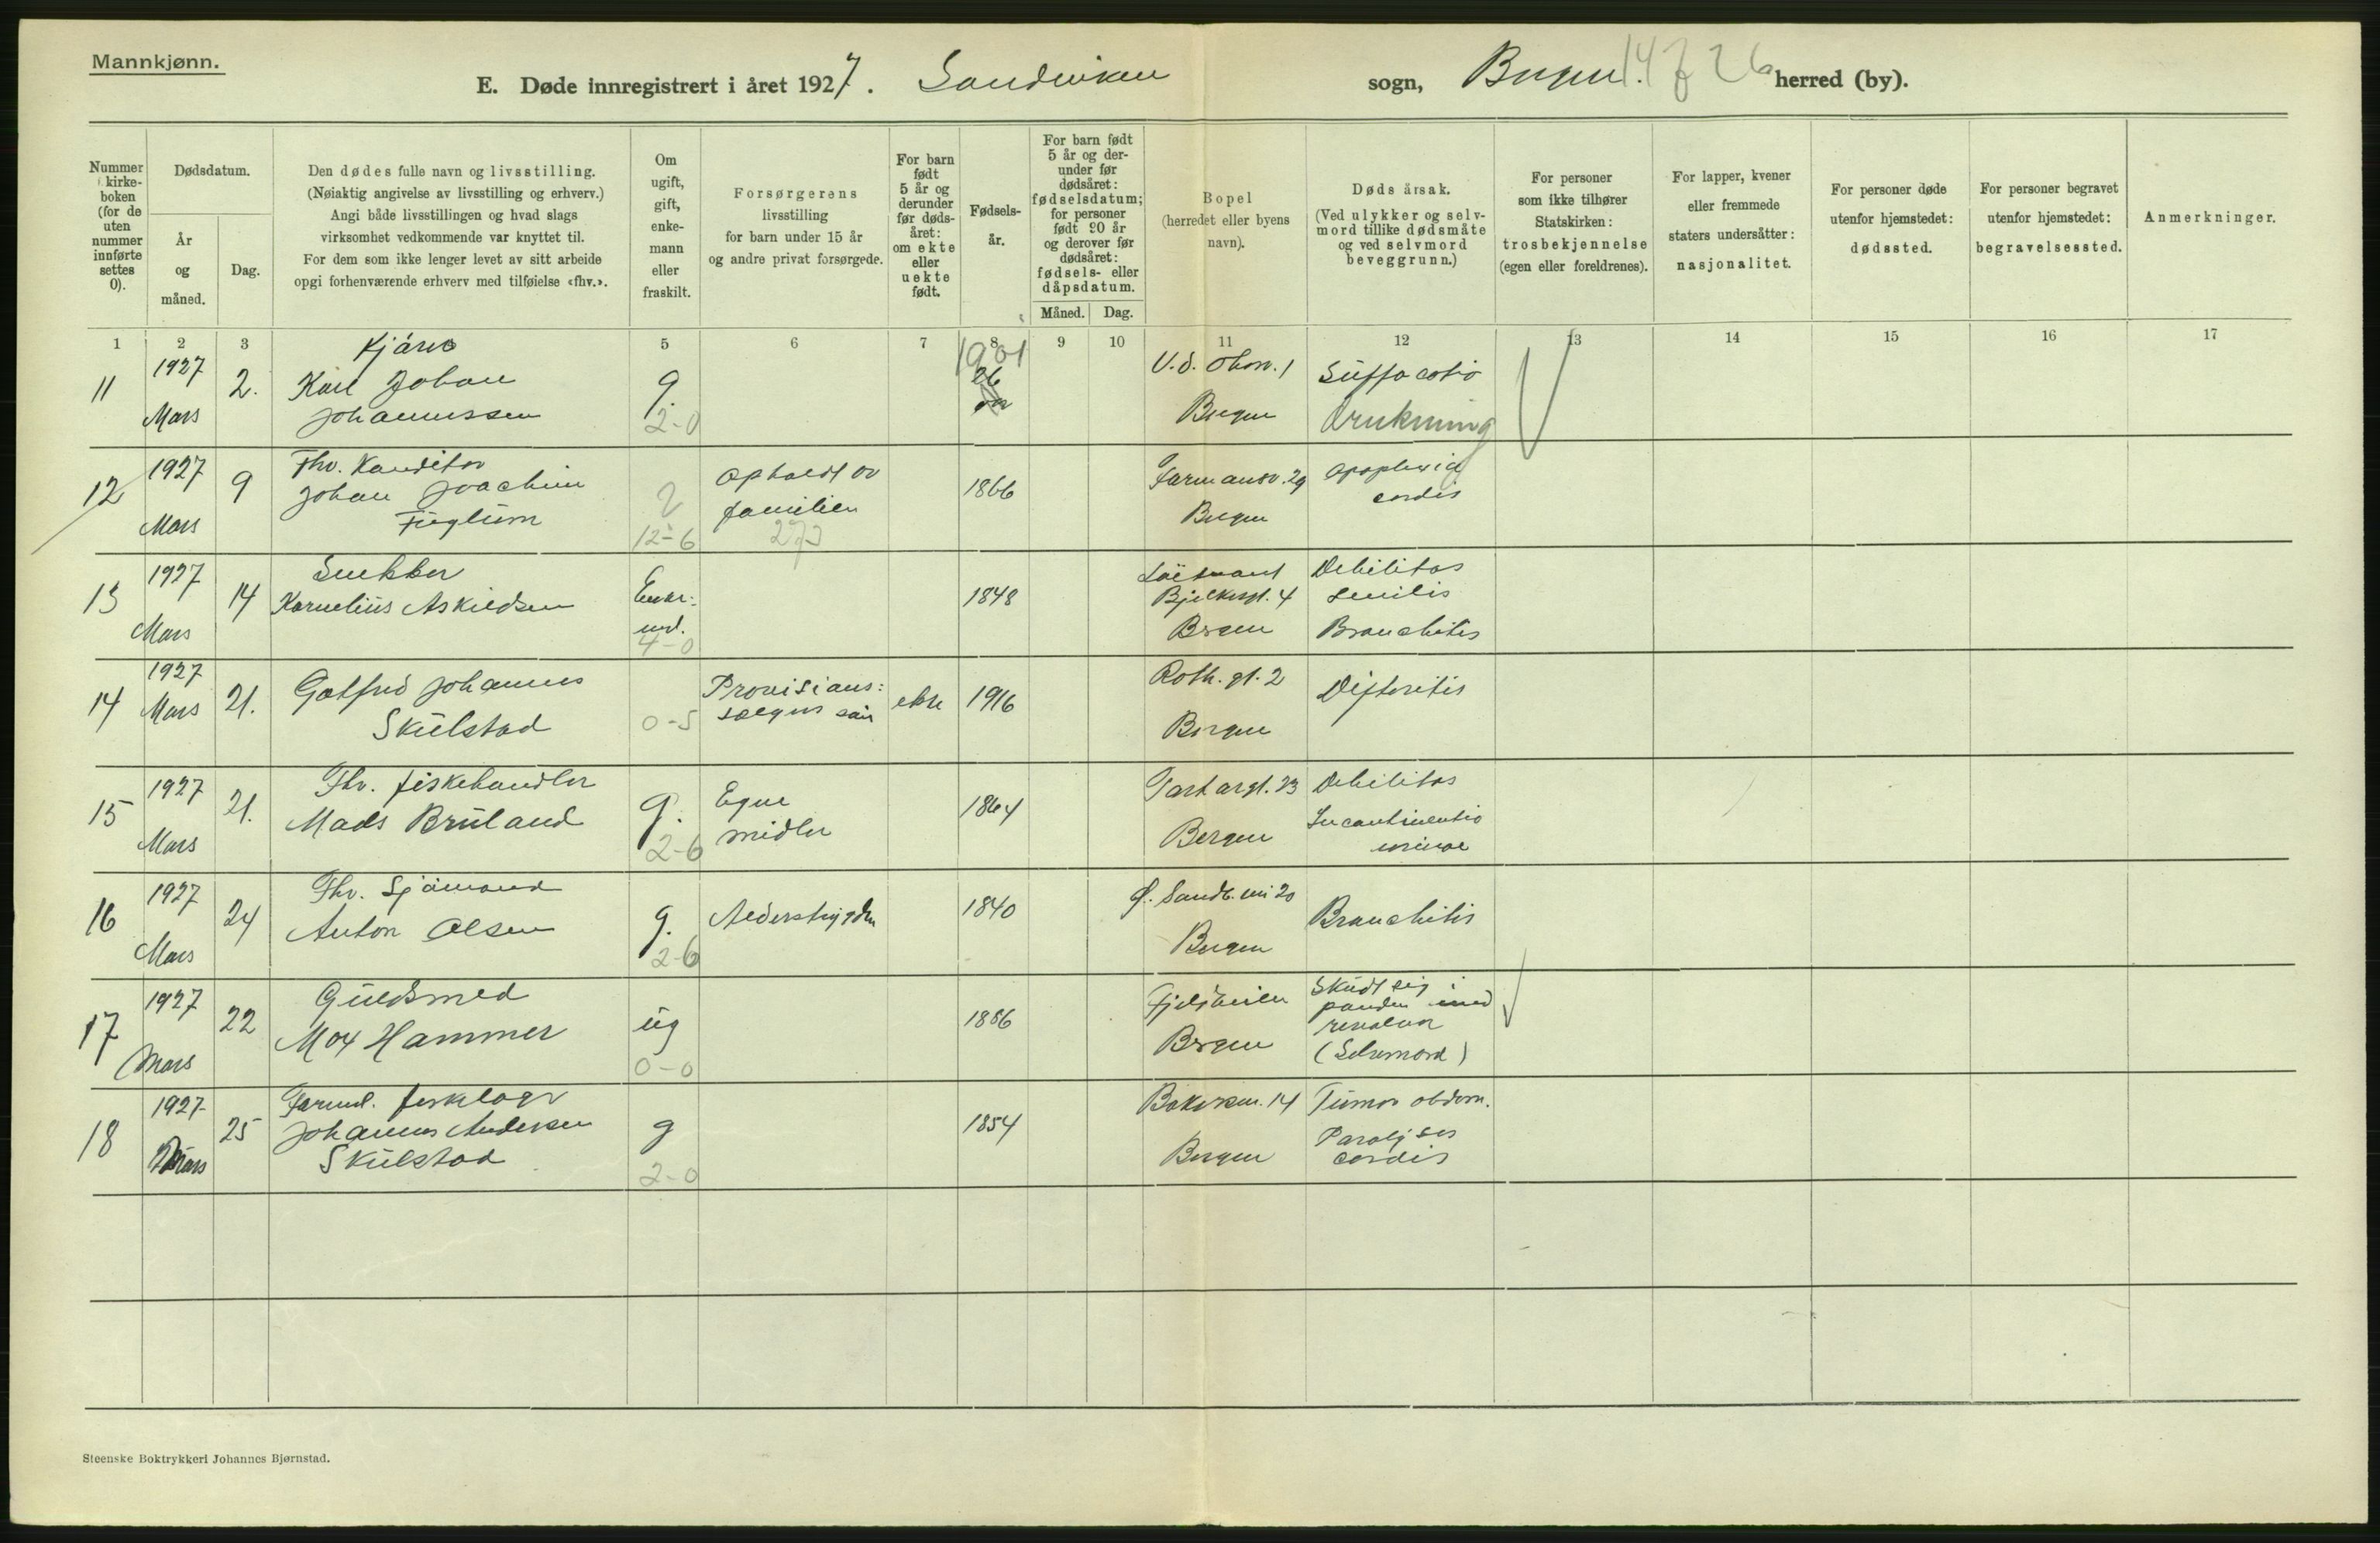 Mannkjønn.
E. Døde innregistrert i året 1927. Sandviken sogn, Bergen. herred (by).
Nummer i kirke-boken (for de uten nummer innførte settes 0).
Dødsdatum.
År og måned.
Dag.
Den dødes fulle navn og livsstilling.
(Nøiaktig angivelse av livsstilling og erhverv.)
Angi både livsstillingen og hvad slags
virksomhet vedkommende var knyttet til.
For dem som ikke lenger levet av sitt arbeide
opgi forhenværende erhverv med tilføielse «fhv.».
Om ugift, gift, enke-mann eller fraskilt.
Forsørgerens
livsstilling
for barn under 15 år
og andre privat forsørgede.
For barn født 5 år og derunder før døds-året: om ekte eller uekte født.
Fødsels-år.
For barn født 5 år og der-under før dødsåret: fødselsdatum; for personer født 90 år og derover før dødsåret: fødsels- eller dåpsdatum.
Måned. Dag.
Bopel
(herredet eller byens
navn).
Døds årsak.
(Ved ulykker og selv-
mord tillike dødsmåte
og ved selvmord
beveggrunn.)
For personer
som ikke tilhører
Statskirken:
trosbekjennelse
(egen eller foreldrenes).
For lapper, kvener
eller fremmede
staters undersåtter:
nasjonalitet.
For personer døde
utenfor hjemstedet:
dødssted.
For personer begravet
utenfor hjemstedet:
begravelsessted.
Anmerkninger.
1 2 3 5 6 7 8 9 10 11 12 13 14 15 16 17
11 1927 Mars 2.
Karl Johan
Johannessen
g. 2-0
1901
26
år
Bergen
Suffocatio
drukning
12 1927 Mars 9
Fhv. Konditor
Johan Joachim
Fuglum
2
12-6
Opholdt av
familien
273
1866
Formansv. 29
Bergen
Apoplexia
cordis
13 1927 Mars 14
Snekker
Kornelius Askildsen
Enke:
md.
4-0
1848
Løitnant
Bjelkesgt. 4
Bergen
Debilitas
senilis
Bronchitis
14 1927 Mars 21.
Gotfred Johannes
Skulstad
0-5
Provisions:
sælgers søn
ekte
1916
Roth. gt. 2
Bergen
Difteritis
15 1927 Mars 21.
Fhv. fiskehandler
Mads Bruland
g.
2-6
Egne
midler
1864
Tartargt. 23
Bergen
Debilitas
Incontinentio
urinae
16 1927 Mars 24
Fhv. Sjømand
Anton Olsen
g.
2-6
Alderstrygden
1840
Ø. Sandv. vei 20
Bergen
Bronchitis
17 1927 Mars 22
Guldsmed
Max Hammer
ug
0-0
1886
Fjeldveien
Bergen
Skudt seg i
panden med
revolver
(Selvmord)
18 1927 Mars 25
Johannes Andersen
Skulstad
g
2-0
1854
Bergen
Tumor abdom.
Paralyses
cordis
Steenske Boktrykkeri Johannes Bjørnstad.